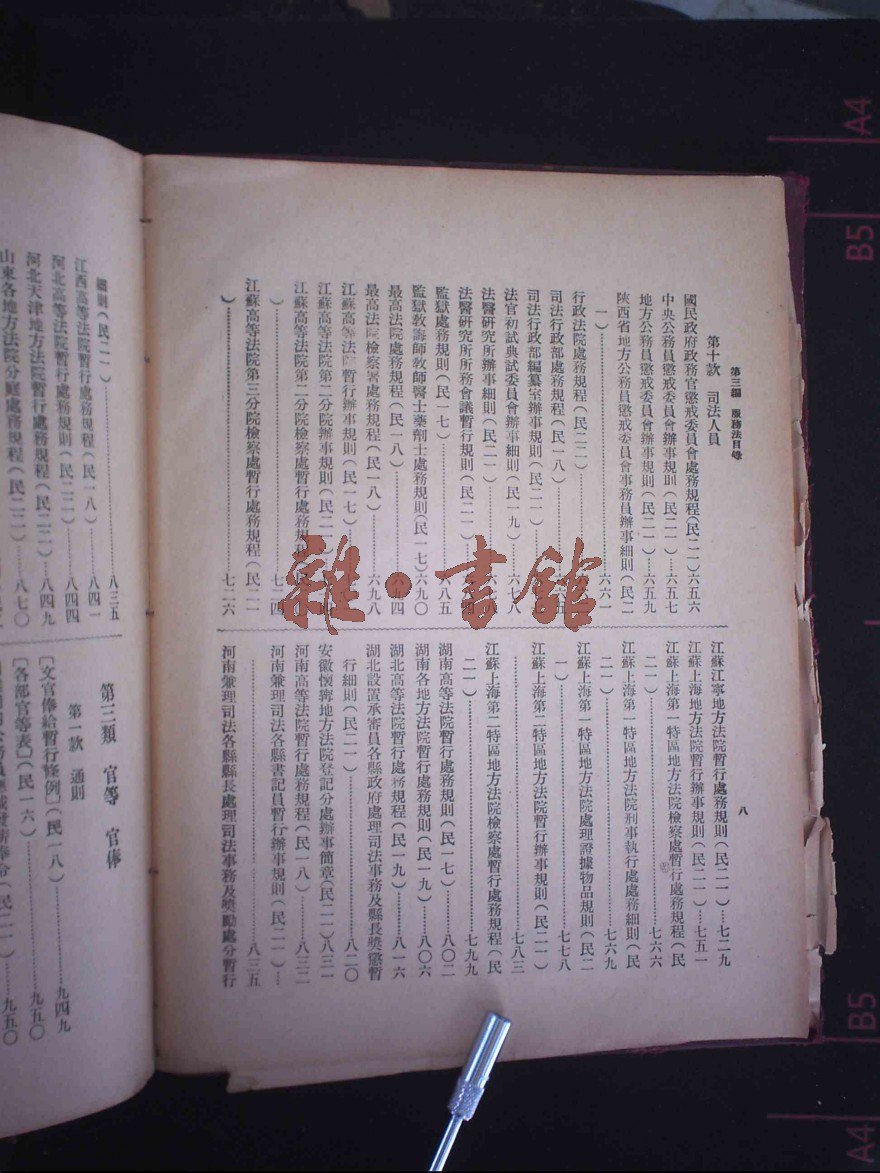 第三編　服務法目錄
八
第十款　司法人員
國民政府政務官懲戒委員會處務規程(民二一)六五六
中央公務員懲戒委員會辦事規則(民二一)…六五七
地方公務員懲戒委員會辦事規則(民二一)…六五九
陝西省地方公務員懲戒委員會事務員辦事細則(民二
一)…六六一
行政法院處務規程(民二二)…
司法行政部處務規程(民一八)…
司法行政部編纂室辦事規則(民二一)…
法官初試典試委員會辦事細則(民一九)…六七八
法醫研究所辦事細則(民二一)…
法醫研究所所務會議暫行規則(民二一)…
監獄處務規則(民一七)…
監獄教誨師教師醫士藥劑士處務規則(民一七)六九〇
最高法院處務規程(民一八)…
最高法院檢察署處務規程(民一八)…六九八
江蘇高等法院暫行辦事規則(民一七)…
江蘇高等法院第二分院辦事規則(民二一)…
江蘇高等法院第二分院檢察處暫行處務規程
)…
江蘇高等法院第三分院檢察處暫行處務規程(民二一
)…七二六
江蘇江寧地方法院暫行處務規則(民二一)…七二九
江蘇上海地方法院暫行辦事規則(民二一)…七五一
江蘇上海第一特區地方法院檢察處暫行處務規程(民
二一)…七六六
江蘇上海第一特區地方法院刑事執行處處務細則(民
二一)…七六九
江蘇上海第一特區地方法院處理證據物品規則(民二
一)…七七八
江蘇上海第二特區地方法院暫行辦事規則(民二一)
…七八三
江蘇上海第二特區地方法院檢察處暫行處務規程(民
二一)…七九九
湖南高等法院暫行處務規則(民一七)…八〇二
湖南各地方法院暫行處務規則(民一九)…八〇六
湖北高等法院暫行處務規程(民一九)…八一六
湖北設置承審員各縣政府處理司法事務及縣長獎懲暫
行細則(民二一)…八二〇
安徽懷寧地方法院登記分處辦事簡章(民二一)八三一
河南高等法院暫行處務規程(民一八)…八三二
河南兼理司法各縣書記員暫行辦事規則(民二一)…
…八三五
河南兼理司法各縣縣長處理司法事務及獎勵處分暫行
細則(民二一)…八三五
江西高等法院暫行處務規程(民一八)…八四一
河北高等法院暫行處務規則(民二二)…八四四
河北天津地方法院暫行處務規程(民二二)…八四九
山東各地方法院分庭處務規程(民二二)…八七〇
第三類　官等　官俸
第一款　通則
〔文官俸給暫行條例〕(民一八)…九四九
〔各部官等表〕(民一六)…九五〇
雜·書館
A4
B5
B5
A4